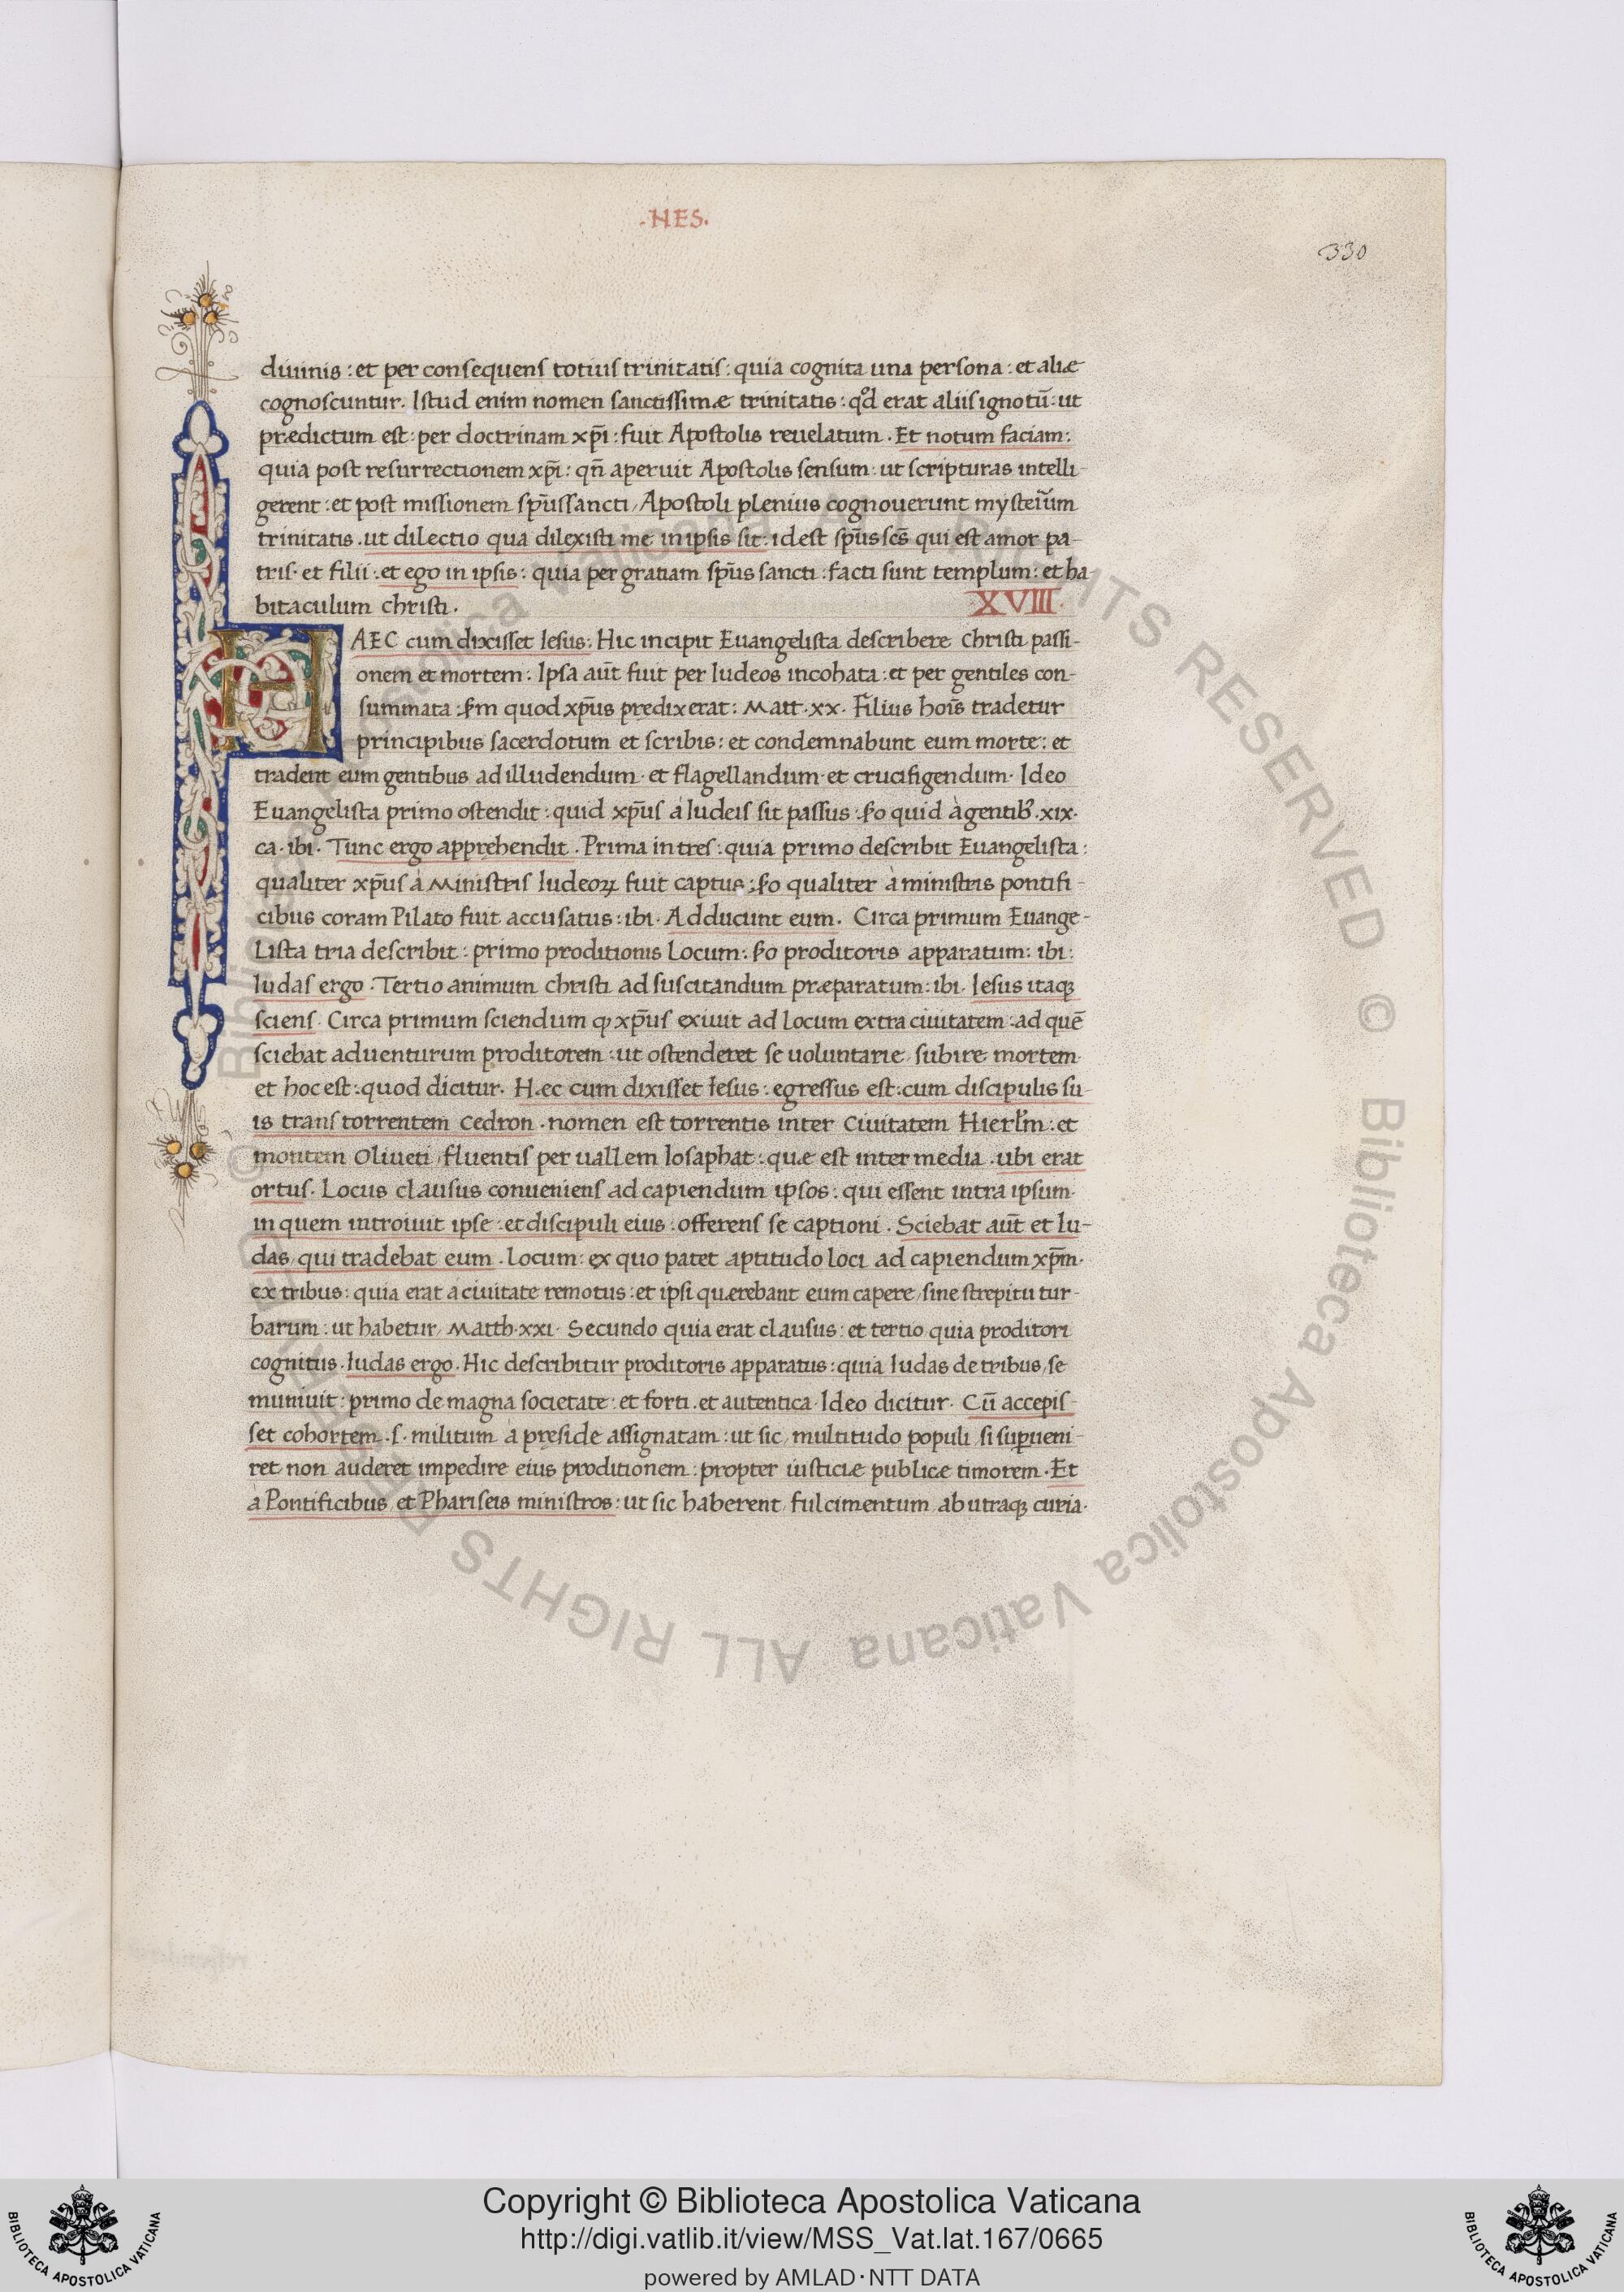 .HES.
330
diuinis : et per consequens totius trinitatis : quia cognita una persona : et aliæ
cognoscuntur. Istud enim nomen sanctissimæ trinitatis : qd̛ erat aliis ignotū : ut
prædictum est : per doctrinam xp̄i : fuit Apostolis reuelatum . Et notum faciam :
quia post resurrectionem xp̄i : qn̄ aperuit Apostolis sensum : ut scripturas intelli-
gerent : et post missionem sp̄ussancti / Apostoli plenius cognouerunt mysterīum
trinitatis . ut dilectio qua dilexisti me in ipsis sit : idest sp̄us scs̄ qui est amor pa-
tris · et filii : et ego in ipsis : quia per gratiam sp̄us sancti : facti sunt templum : et ha
bitaculum christi .
XVIII.
HAEC cum dixisset Iesus : Hic incipit Euangelista describere Christi passi-
onem et mortem : Ipsa aut̄ fuit per Iudeos incohata : et per gentiles con-
summata : ẜm quod xp̄us prędixerat : Matt · xx · Filius hoīs tradetur
principibus sacerdotum et scribis : et condemnabunt eum morte : et
tradent eum gentibus ad illudendum · et flagellandum · et crucifigendum · Ideo
Euangelista primo ostendit : quid xp̄us à Iudeis sit passus : ẜo quid à gentib; · xix ·
ca · ibi · Tunc ergo apprehendit . Prima in tres : quia primo describit Euangelista :
qualiter xp̄us à Ministris Iudeoꝝ fuit captus : ẜo qualiter à ministris pontifi-
cibus coram Pilato fuit accusatus : ibi · Adducunt eum . Circa primum Euange-
Lista tria describit : primo proditionis Locum : ẜo proditoris apparatum : ibi :
Iudas ergo · Tertio animum christi ad suscitandum præparatum : ibi · Iesus itaqꝫ
sciens · Circa primum sciendum ꝙ xp̄us exiuit ad Locum extra ciuitatem : ad quē
sciebat aduenturum proditorem : ut ostenderet se uoluntarie / subire mortem ·
et hoc est : quod dicitur · Hęc cum dixisset Iesus : egressus est : cum discipulis su-
is trans torrentem Cedron · nomen est torrentis inter Ciuitatem Hierl̄m : et
montem Oliueti / fluentis per uallem Iosaphat : quæ est inter media . ubi erat
ortus . Locus clausus conueniens ad capiendum ipsos : qui essent intra ipsum ·
in quem introiuit ipse : et discipuli eius : offerens se captioni . Sciebat aut̄ et Iu-
das / qui tradebat eum . Locum : ex quo patet aptitudo loci ad capiendum xp̄m ·
ex tribus : quia erat à ciuitate remotus : et ipsi quærebant eum capere / sine strepitu tur-
barum : ut habetur / Matth · xxi · Secundo quia erat clausus : et tertio quia proditori
cognitus · Iudas ergo . Hic describitur proditoris apparatus : quia Iudas de tribus / se
muniuit : primo de magna societate : et forti . et autentica · Ideo dicitur · Cū accepis-
set cohortem . s · militum à pręside assignatam : ut sic / multitudo populi / si suꝑueni-
ret / non auderet impedire eius proditionem : propter iusticiæ publicæ timorem · Et
à Pontificibus / et Phariseis ministros : ut sic haberent / fulcimentum / ab utraqꝫ curia ·
© Biblioteca Apostolica Vaticana ALL RIGHTS RESERVED © Biblioteca Apostolica Vaticana ALL RIGHTS RESERVED
Copyright © Biblioteca Apostolica Vaticana
http://digi.vatlib.it/view/MSS_Vat.lat.167/0665
powered by AMLAD·NTT DATA
BIBLIOTECA APOSTOLICA VATICANA
BIBLIOTECA APOSTOLICA VATICANA